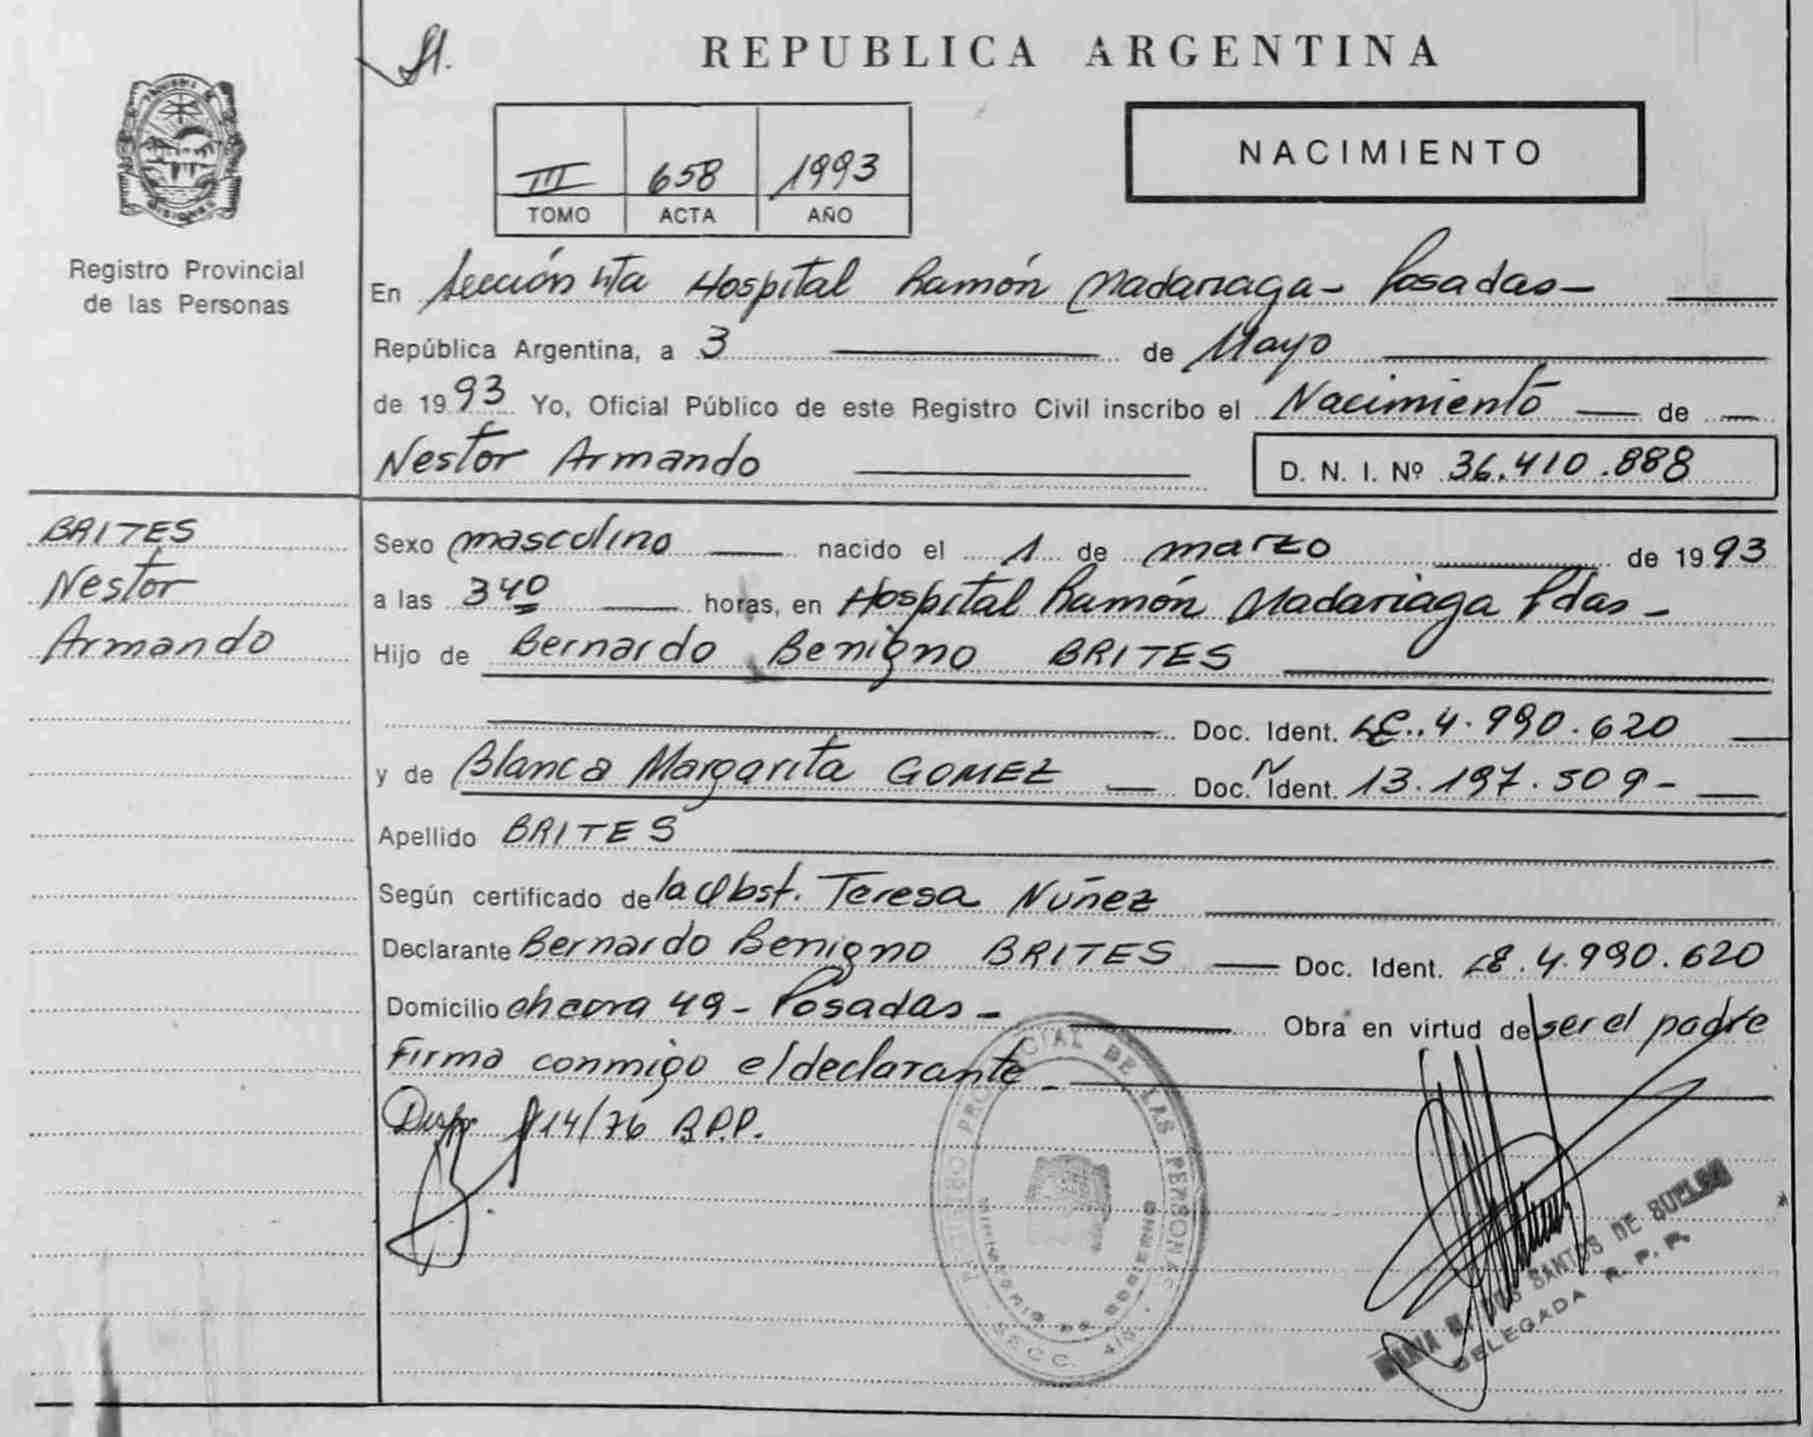 St.
REPUBLICA ARGENTINA
NACIMIENTO
III 658 1993
TOMO ACTA AÑO
Registro Provincial
de las Personas
En Sección 4ta Hospital Ramón Madariaga - Posadas -
República Argentina, a 3 de Mayo
de 1993 Yo, Oficial Público de este Registro Civil inscribo el Nacimiento de
Nestor Armando D. N. I. Nº 36.410.888
BRITES
Nestor
Armando
Sexo masculino nacido el 1 de marzo de 1993
a las 3 40 horas, en Hospital Ramón Madariaga Pdas -
Hijo de Bernardo Benigno BRITES
Doc. Ident. LE. 4.990.620
y de Blanca Margarita GOMEZ Doc. N Ident. 13.197.509 -
Apellido BRITES
Según certificado de la Obst. Teresa Núñez
Declarante Bernardo Benigno BRITES Doc. Ident. LE. 4.990.620
Domicilio chacra 49 - Posadas - Obra en virtud de ser el padre
Firma conmigo el declarante -
Disp. 14/76 R.P.P.
REGISTRO PROVINCIAL DE LAS PERSONAS
MINISTERIO DE GOBIERNO
SECC. 4ta.
DOS SANTOS DE
DELEGADA R. P. P.